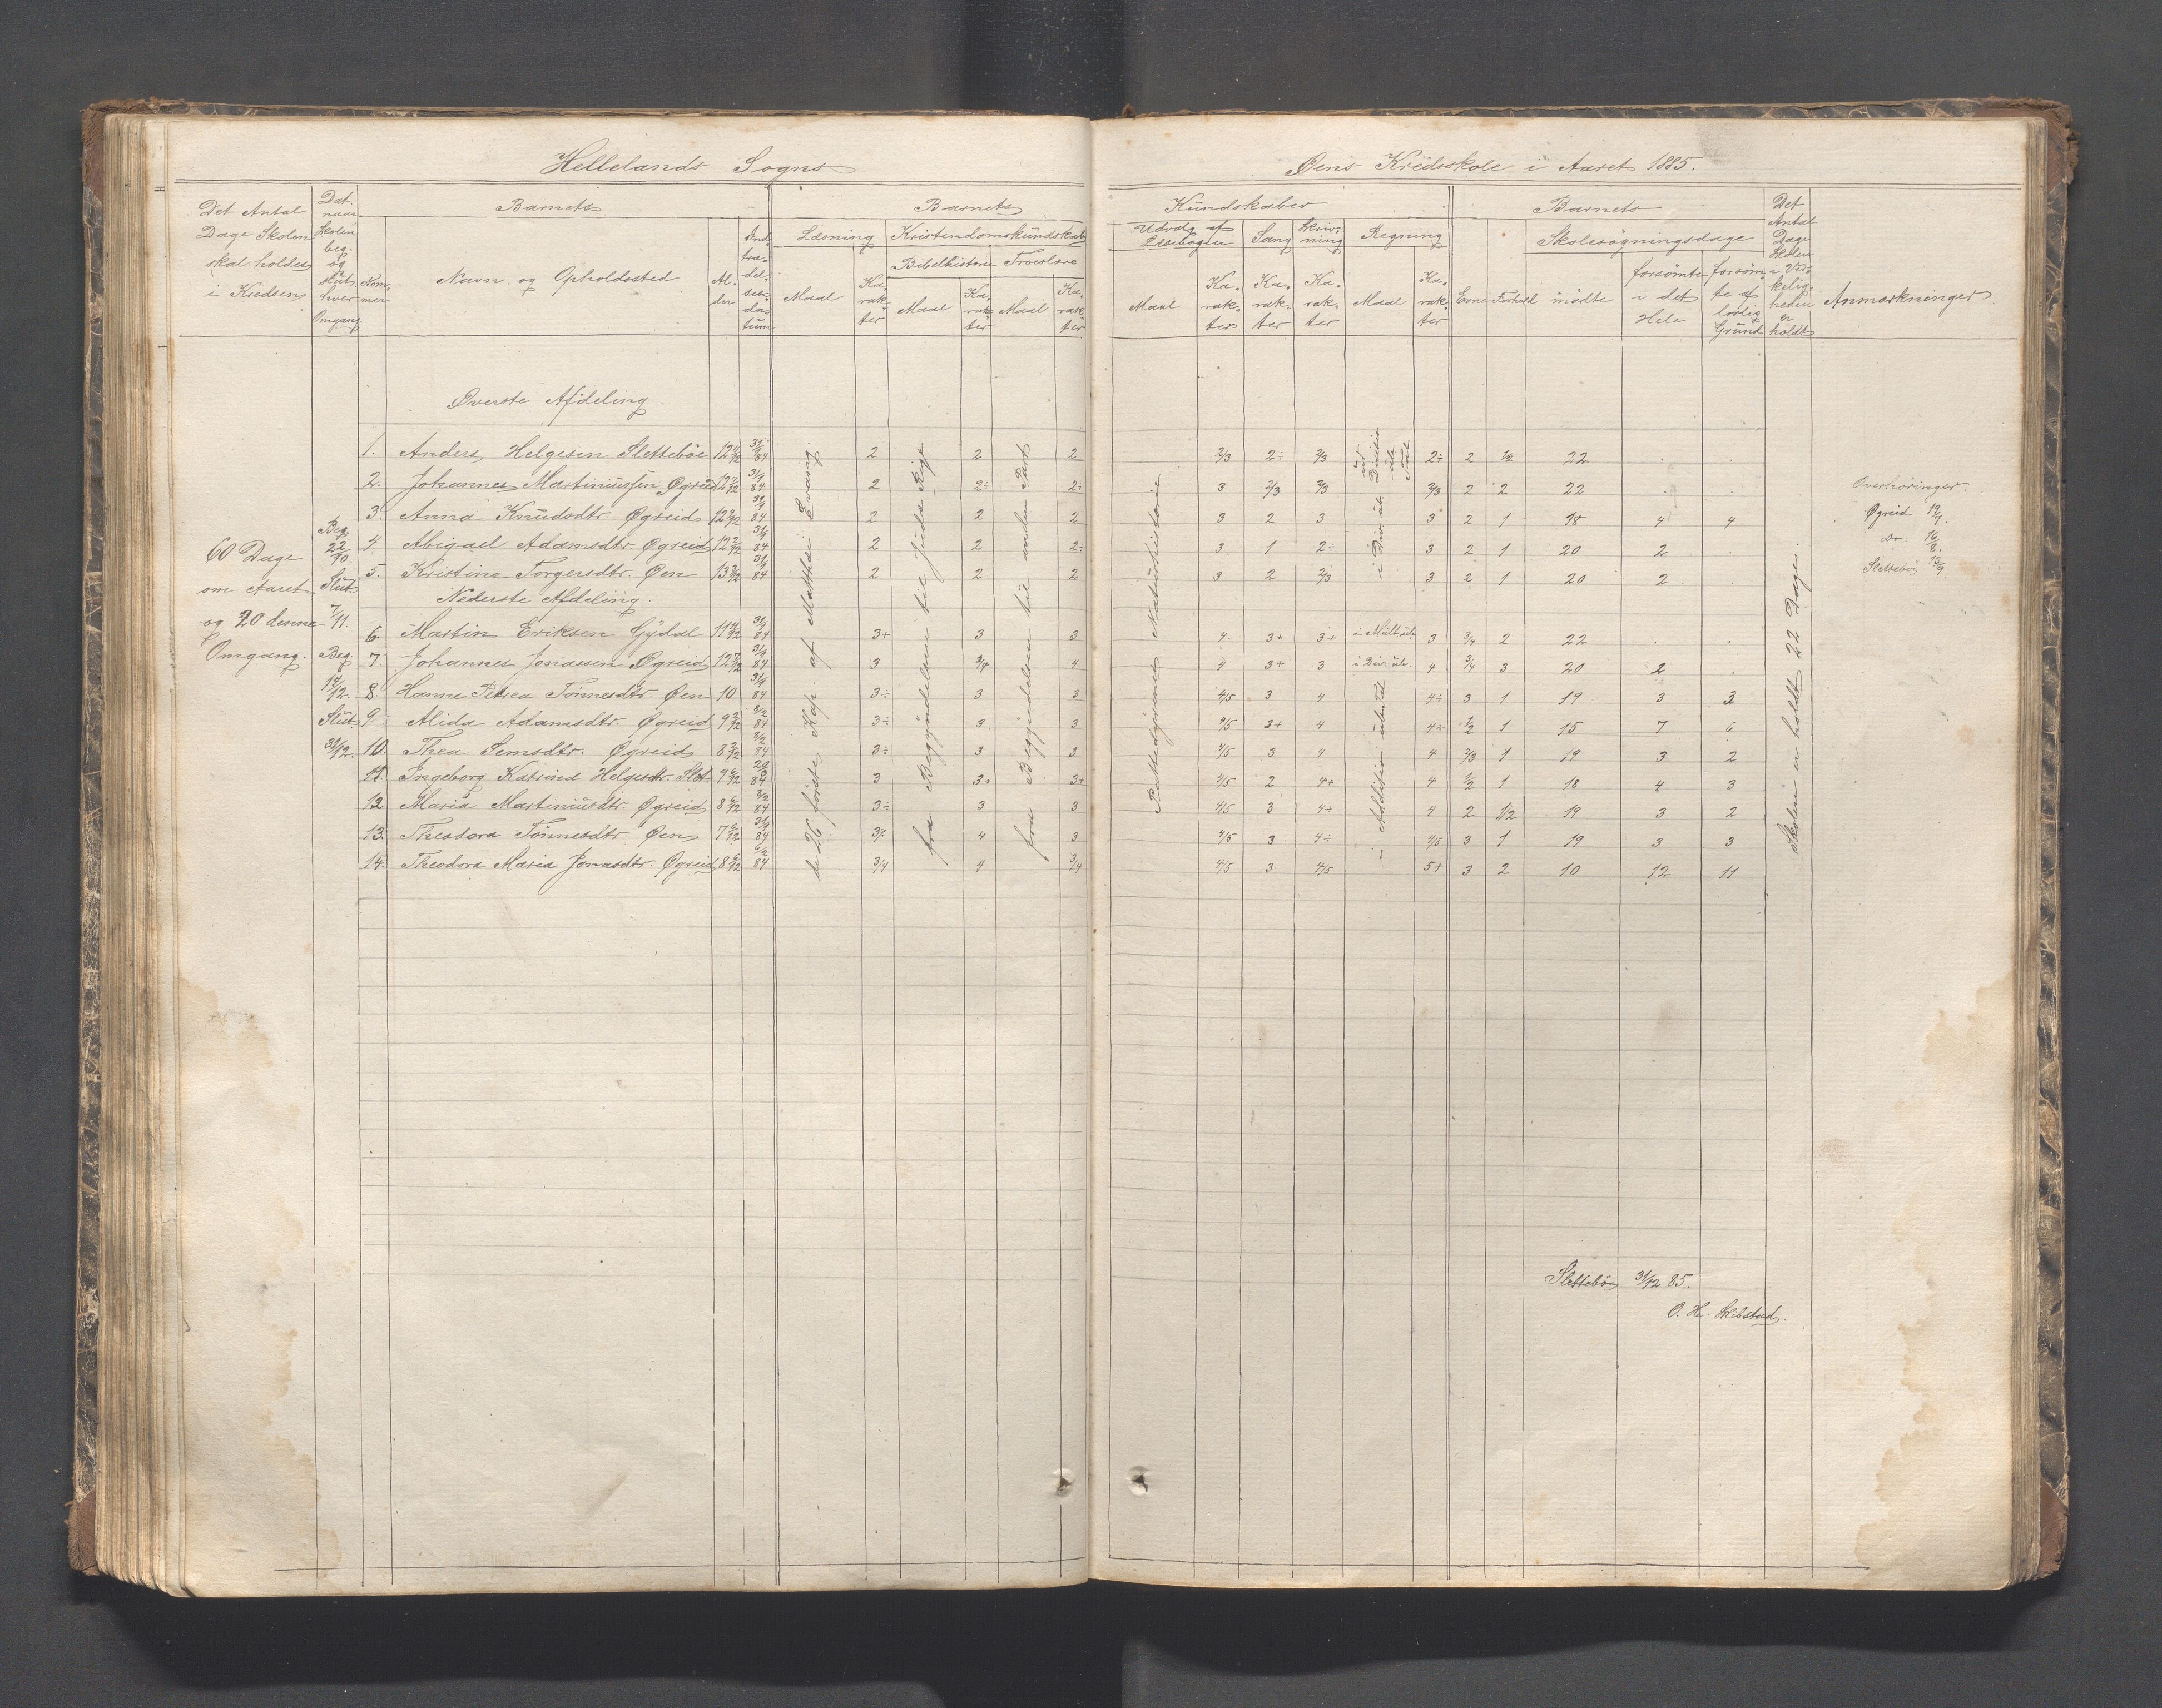 Hellelands Sogns
Øens Kredsskole i Aaret 1885.
Det Antal Dage Skolen skal holdes i Kredsen
Dat. naar Skolen beg. og slut. hver Omgang.
Barnets
Nommer
Navn og Opholdssted
Alder
Indtrædelsesdatum
Barnets
Læsning
Kristendomskundskab
Bibelhistorie
Troeslære
Maal
Karakter
Maal
Karakter
Maal
Karakter
Kundskaber
Udvalg af Læsebogen
Sang
Skrivning
Regning
Maal
Karakter
Karakter
Karakter
Maal
Karakter
Barnets
Evne
Forhold
Skolesøgningsdage
mødte
forsømte i det Hele
forsømte af lovlig Grund
Det Antal Dage Skolen i Virkeligheden er holdt
Anmærkninger.
60 Dage
om Aaret
og 20 denne
Omgang.
Beg.
22/10.
Slut
7/11.
Beg.
14/12.
Slut
31/12.
Øverste Afdeling
1. Anders Helgesen Slettebøe 31/1 84 2 2 2 2/3 2÷ 2/3 2÷ 2 1/2 22 . .
2. Johannes Martiniussen Øgreid 31/1 84 2 2÷ 2÷ 3 2/3 2/3 2/3 2 2 22 . .
3. Anna Knudsdtr. Øgreid 31/1 84 2 2 2 3 2 3 3 2 1 18 4 4
4. Abigael Adamsdtr. Øgreid 31/1 84 2 2 2÷ 3 1 2÷ 3 2 1 20 2 .
5. Kristine Torgersdtr. Øen 31/1 84 2 2 2 3 2 2/3 3 2 1 20 2 .
Nederste Afdeling.
6. Martin Eriksen Gydal 31/1 84 3+ 3 3 4 3+ 3+ i Mult. ub. 3 3/4 2 22 . .
7. Johannes Jonassen Øgreid 31/1 84 3 3/4 4 4 3+ 3 i Div. ub. 4 3/4 3 20 2 .
8. Hanne Petrea Tönnesdtr. Øen 10 31/1 84 3÷ 3 3 4/5 3 4 4÷ 3 1 19 3 3
9. Alida Adamsdtr. Øgreid 84 3÷ 3 3 4/5 3+ 4 4+ 1/2 1 15 7 6
10. Thea Semsdtr. Øgreid 84 3÷ 3 3 4/5 3 4 4 2/3 1 19 3 2
11. Ingeborg Katrine Helgesdtr. Slet. 84 3 3+ 3+ 4/5 2 4+ 4 1/2 1 18 4 3
12. Maria Martiniusdtr. Øgreid 84 3÷ 3 3 4/5 3 4÷ 4 2 1/2 19 3 2
13. Theodora Tönnesdtr. Øen 31/1 84 3÷ 4 3 4/5 3 4÷ 4/5 3 1 19 3 3
14. Theodora Maria Jonasdtr. Øgreid 84 3/4 4 3/4 4/5 3 4/5 5+ 3 2 10 12 11
de 26 første Kap. af Matthæi Evang.
fra Begyndelsen til Juda Rige
fra Begyndelsen til anden Part
Pattedyrenes Naturhistorie
i Addition
i Div. ub.
Skolen er holdt 22 Dage.
Overhøringer.
Øgreid 19/7.
Do. 16/8.
Slettebø 13/9
Slettebø 31/12 85.
O. H. Skibstad.